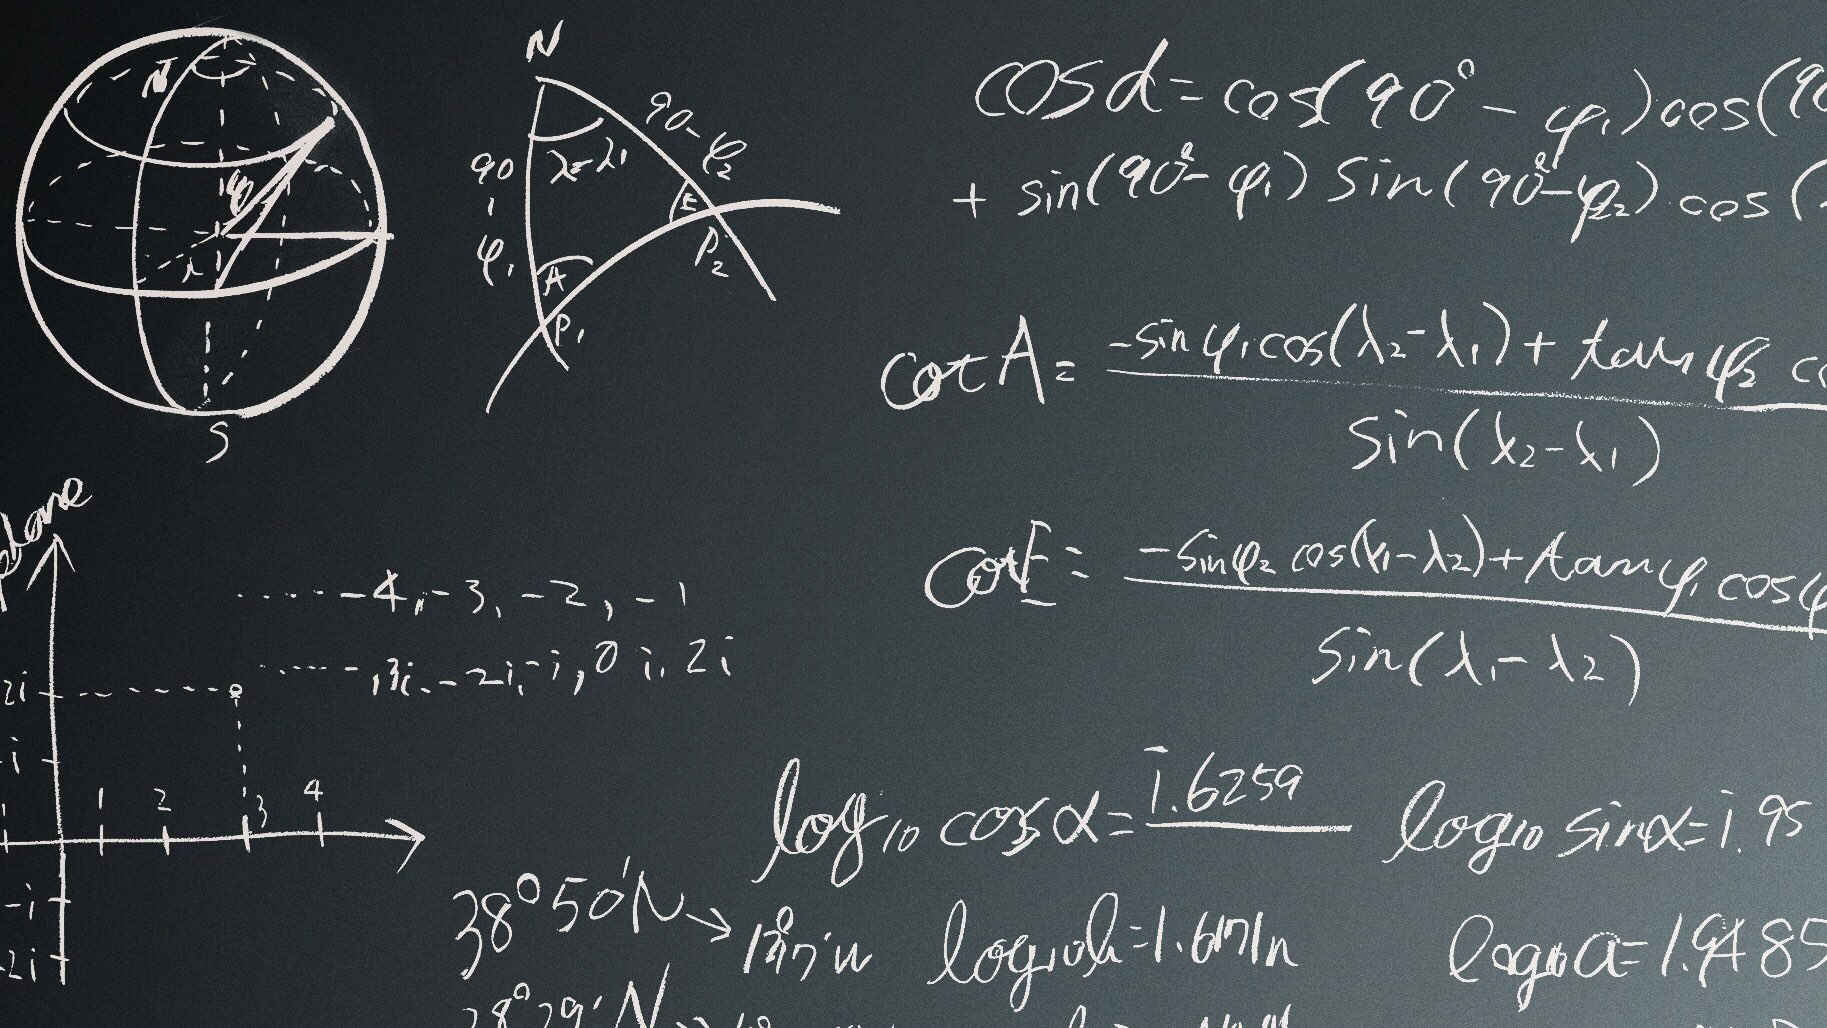 N
S
N
90-φ₂
90
-
φ₁
λ=λ₁
E
A
P₂
P₁
cos d = cos(90° - φ₁) cos(90
+ sin(90° - φ₁) sin(90° - φ₂) cos(
cot A = -sin φ₁ cos(λ₂ - λ₁) + tan φ₂ co
sin(λ₂ - λ₁)
cot E = -sin φ₂ cos(λ₁ - λ₂) + tan φ₁ cos φ
sin(λ₁ - λ₂)
plane
..... -4, -3, -2, -1
..... -3i, -2i, -i, 0 i, 2i
2i
i
1 2 3 4
-i
-2i
log₁₀ cos α = 1̅.6259
log₁₀ sin α = 1̅.95
38°50'N →
log₁₀ a = 1.9485